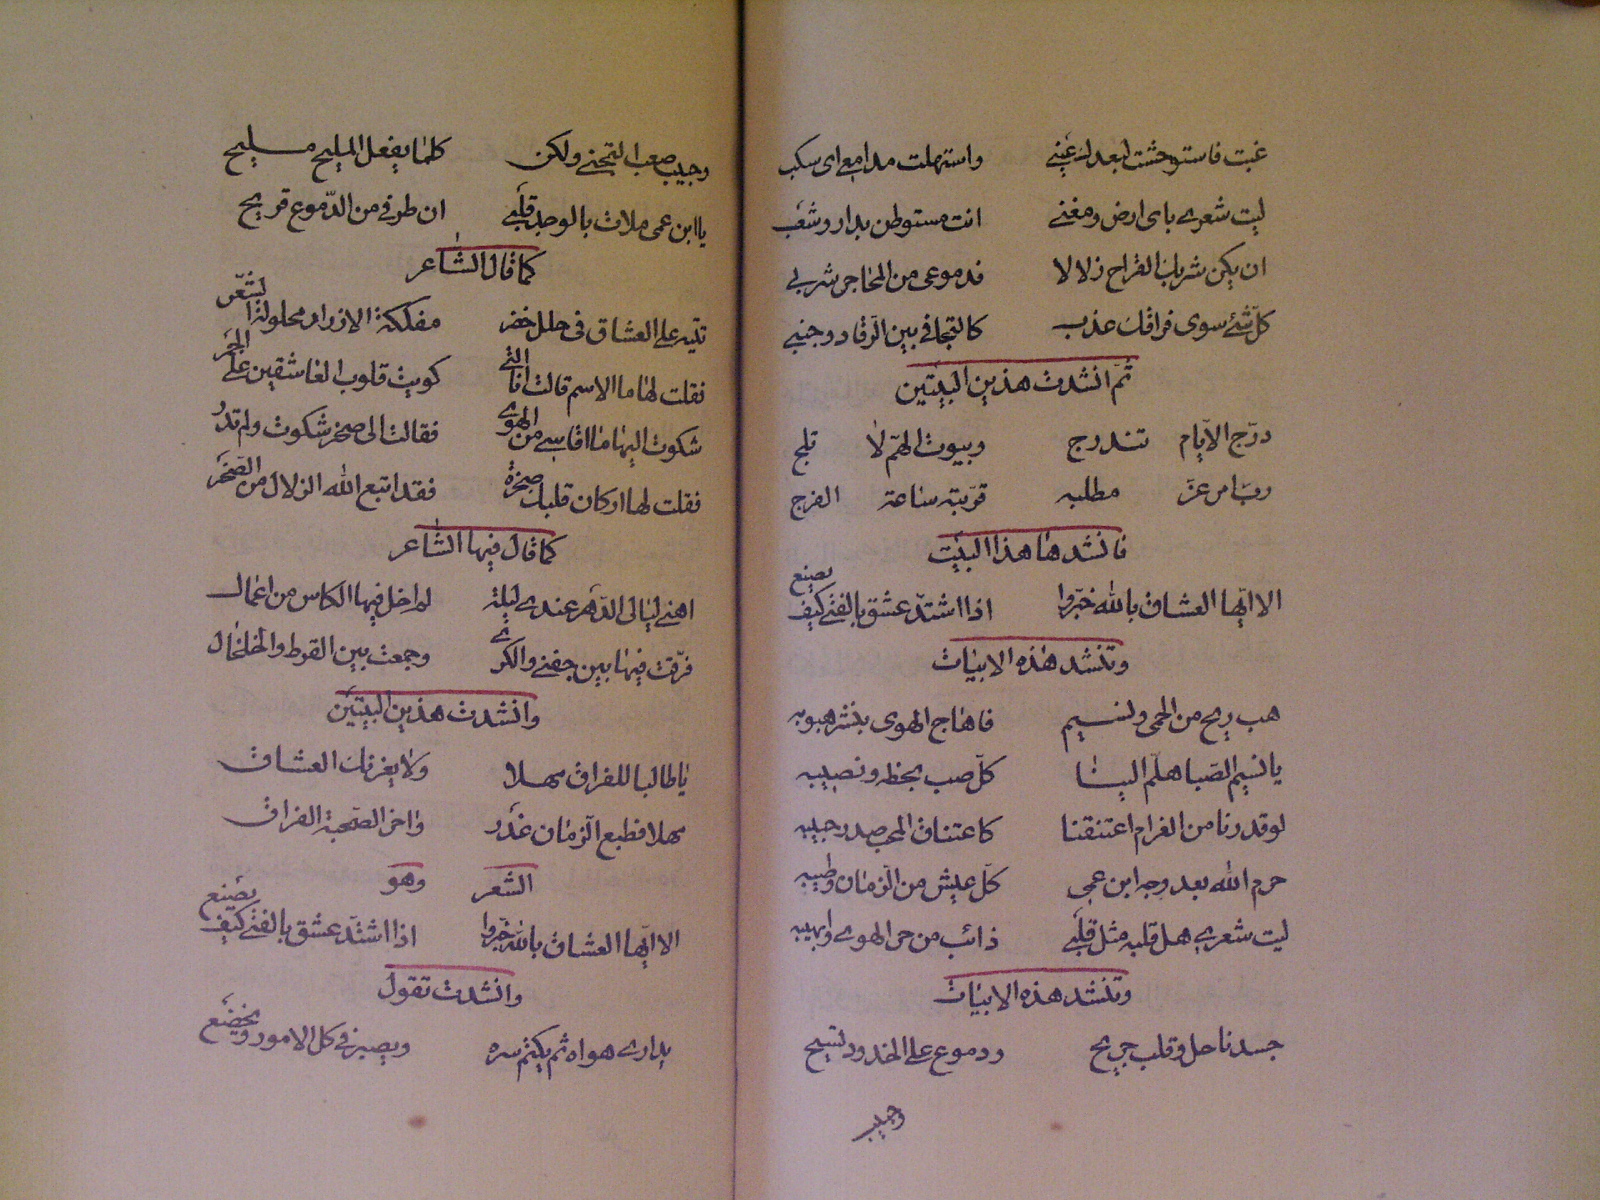 غبت فاستوحشت لبعدك عيني واستهلت مدامعي اى سكب
ليت شعرى باى ارض ومغنى انت مستوطن بدار وشعب
ان يكن شربك القراح زلالا فدموعى من المحاجر شربي
كل شئ سوى فراقك عذب كالتجافي بين الرقاد وجنبي
ثمّ انشدت هذين البيتين
درّج الايّام تندرج وبيوت الهمّ لا تلج
ربّ امر عزّ مطلبه قرّبته ساعة الفرج
فانشدها هذا البيت
الا ايّها العشاق بالله خبّروا اذا اشتدّ عشق بالفتى كيف يصنع
وتنشد هذه الابيات
هب ريح من الحمى ونسيم فاهاج الهوى بنشر هبوبه
يا نسيم الصّبا هلّم الينا كلّ صب بحظه ونصيبه
لو قدرنا من الغرام اعتنقنا كاعتناق المحب صدر حبيبه
حرم الله بعد وجه ابن عمى كلّ عيش من الزمان وطيبه
ليت شعرى هل قلبه مثل قلبي ذائب من حر الهوى ولهيبه
وتنشد هذه الابيات
جسد ناحل وقلب جريح ودموع على الخدود تسيح
وحبيب
وحبيب صعب التجنى ولكن كلما يفعل المليح مليح
يا ابن عمى ملات بالوجد قلبي ان طرفي من الدّموع قريح
كما قال الشاعر
تتيه على العشاق فى حلل خضر مفلكة الازرار محلولة الشعر
فقلت لها ما الاسم قالت انا التى كويت قلوب العاشقين على الجمر
شكوت اليها ما اقاسي من الهوى فقالت الى صخر شكوت ولم تدر
فقلت لها او كان قلبك صخرة فقد انبع الله الزلال من الصّخر
كما قال فيها الشاعر
اهنى ليالى الدّهر عندى ليلة لم اخل فيها الكاس من اعمال
فرّقت فيها بين جفنى والكرى وجمعت بين القرط والخلخال
وانشدت هذين البيتين
يا طالبا للفراق مهلا ولا يغرنك العشاق
مهلا فطبع الزمان غدر واخر الصّحبة الفراق
الشعر وهو
الا ايّها العشاق بالله خبّروا اذا اشتدّ عشق بالفتى كيف يصنع
وانشدت تقول
يدارى هواه ثم يكتم سره ويصبر في كل الامور ويخضع